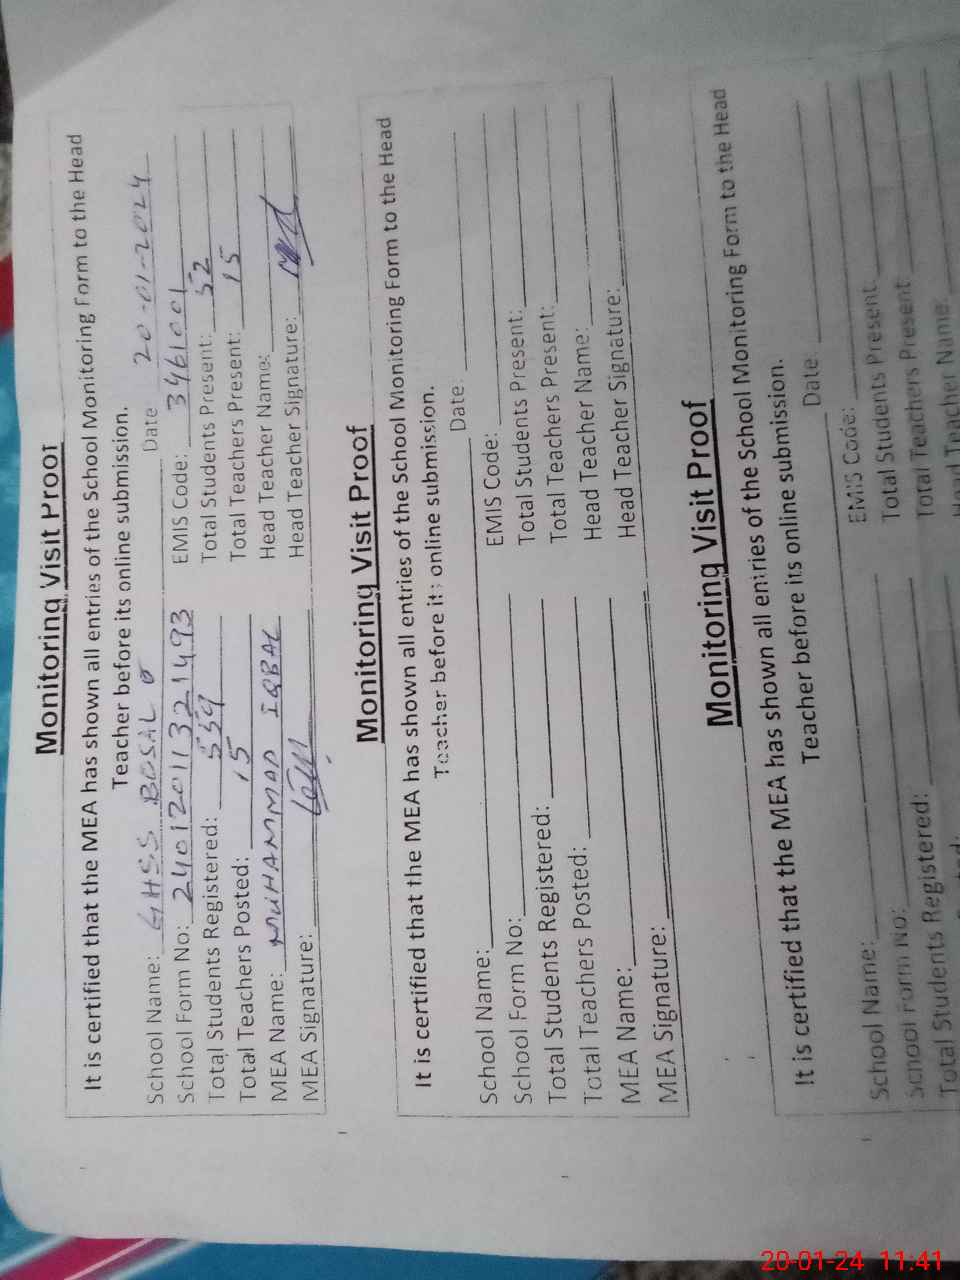 Monitoring Visit Proof
It is certified that the MEA has shown all entries of the School Monitoring Form to the Head
Teacher before its online submission.
School Name: GHSS BOSAL Date 20-01-2024
School Form No: 2401201132 1493 EMIS Code: 3461001
Total Students Registered: 559 Total Students Present: 52
Total Teachers Posted: 15 Total Teachers Present: 15
MEA Name: MUHAMMAD IQBAL Head Teacher Name:
MEA Signature: Head Teacher Signature:
Monitoring Visit Proof
It is certified that the MEA has shown all entries of the School Monitoring Form to the Head
Teacher before its online submission.
School Name: Date:
School Form No: EMIS Code:
Total Students Registered: Total Students Present:
Total Teachers Posted: Total Teachers Present:
MEA Name: Head Teacher Name:
MEA Signature: Head Teacher Signature:
Monitoring Visit Proof
It is certified that the MEA has shown all entries of the School Monitoring Form to the Head
Teacher before its online submission.
School Name: Date
School Form No: EMIS Code:
Total Students Registered: Total Students Present
Total Teachers Present
Head Teacher Name:
20-01-24 11:41